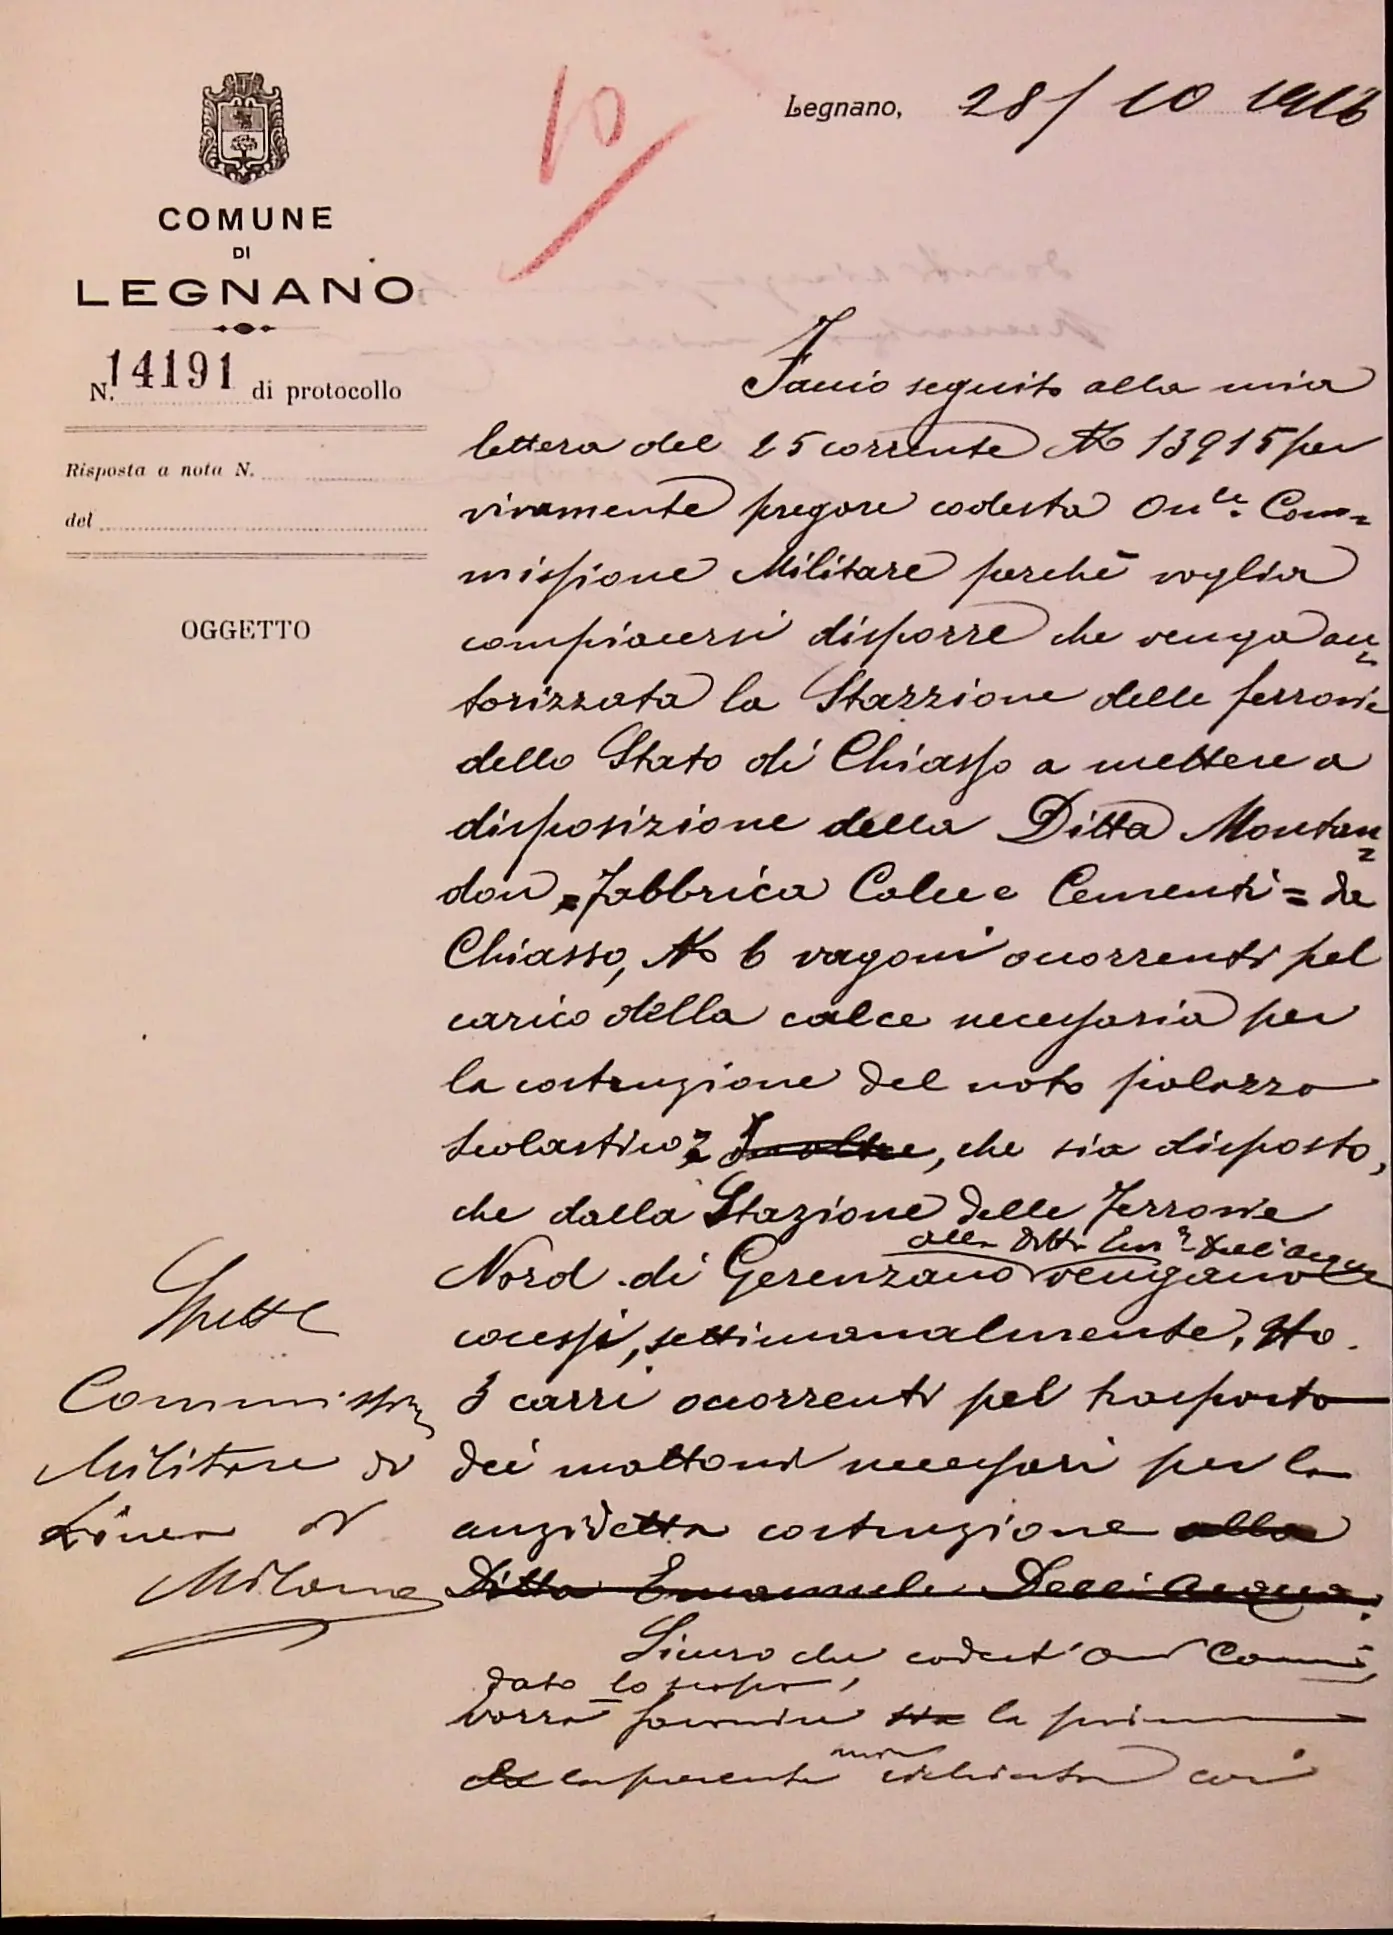 Legnano, 28/10 1916
10
COMUNE
DI
LEGNANO
N. 14191 di protocollo
Risposta a nota N.
del
OGGETTO
Faccio seguito alla mia
lettera del 25 corrente No 13915 per
vivamente pregare codesta On.le Com=
missione Militare perchè voglia
compiacersi disporre che venga au=
torizzata la Stazzione delle ferrovie
dello Stato di Chiasso a mettere a
disposizione della Ditta Montan=
don = Fabbrica Calce e Cementi = da
Chiasso, No 6 vagoni occorrenti pel
carico della calce necessaria per
la costruzione del noto palazzo
scolastico, Inoltre, che sia disposto,
che dalla Stazione delle Ferrovie
alla Ditta Em.e Dell'Acqua
Nord di Gerenzano vengano
concessi, settimanalmente, No.
3 carri occorrenti pel trasporto
dei mattoni necessari per la
anzidetta costruzione alla
Ditta Emanuele Dell'Acqua.
Spett.
Commissione
Militare di
Linea di
Milano
Sicuro che codest' On Comm,
dato lo scopo,
vorrà la
la presente mia richiesta con